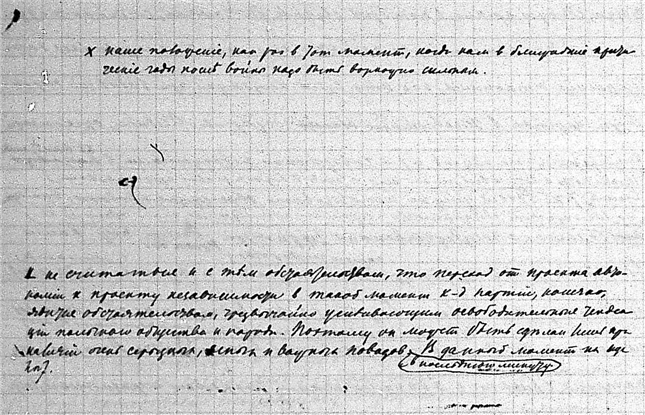 х наше положение, как раз в тот момент, когда нам в ближайшие
годы после войны надо быть сильным.
не считаться и с тем обстоятельством, что переход от проекта авто-
номии к проекту независимости в такой момент к-д партией, конечно,
обстоятельством, чрезвычайно усиливающим освободительные тенден-
ции польского общества и народа. Поэтому он может быть сделан лишь при
наличии очень серьезных, и поводов. В данный момент их
нет.
в последнюю минуту